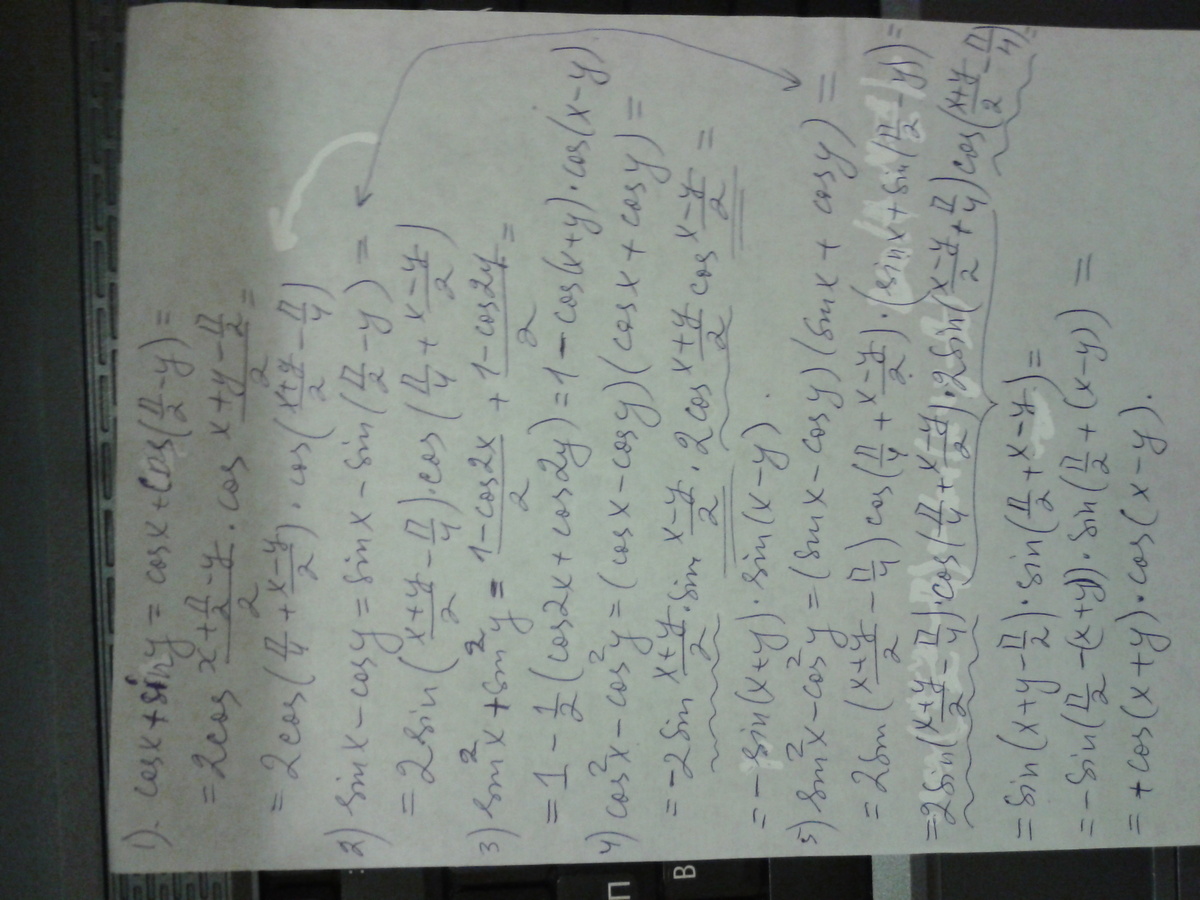 1). cosx + siny = cosx + cos(π/2 - y) =
= 2cos (x + π/2 - y)/2 · cos (x + y - π/2)/2 =
= 2cos(π/4 + (x-y)/2) · cos((x+y)/2 - π/4)
2) sinx - cosy = sinx - sin(π/2 - y) =
= 2sin((x+y)/2 - π/4) · cos(π/4 + (x-y)/2)
3) sin²x + sin²y = (1 - cos2x)/2 + (1 - cos2y)/2 =
= 1 - 1/2 (cos2x + cos2y) = 1 - cos(x+y) · cos(x-y)
4) cos²x - cos²y = (cosx - cosy)(cosx + cosy) =
= -2sin (x+y)/2 · sin (x-y)/2 · 2cos (x+y)/2 cos (x-y)/2 =
= - sin(x+y) · sin(x-y).
5) sin²x - cos²y = (sinx - cosy)(sinx + cosy) =
= 2sin((x+y)/2 - π/4) cos(π/4 + (x-y)/2) · (sinx + sin(π/2 - y)) =
= 2sin((x+y)/2 - π/4) · cos(π/4 + (x-y)/2) · 2sin((x-y)/2 + π/4) cos((x+y)/2 - π/4) =
= sin(x+y - π/2) · sin(π/2 + x-y) =
= - sin(π/2 - (x+y)) · sin(π/2 + (x-y)) =
= + cos(x+y) · cos(x-y).
П
В